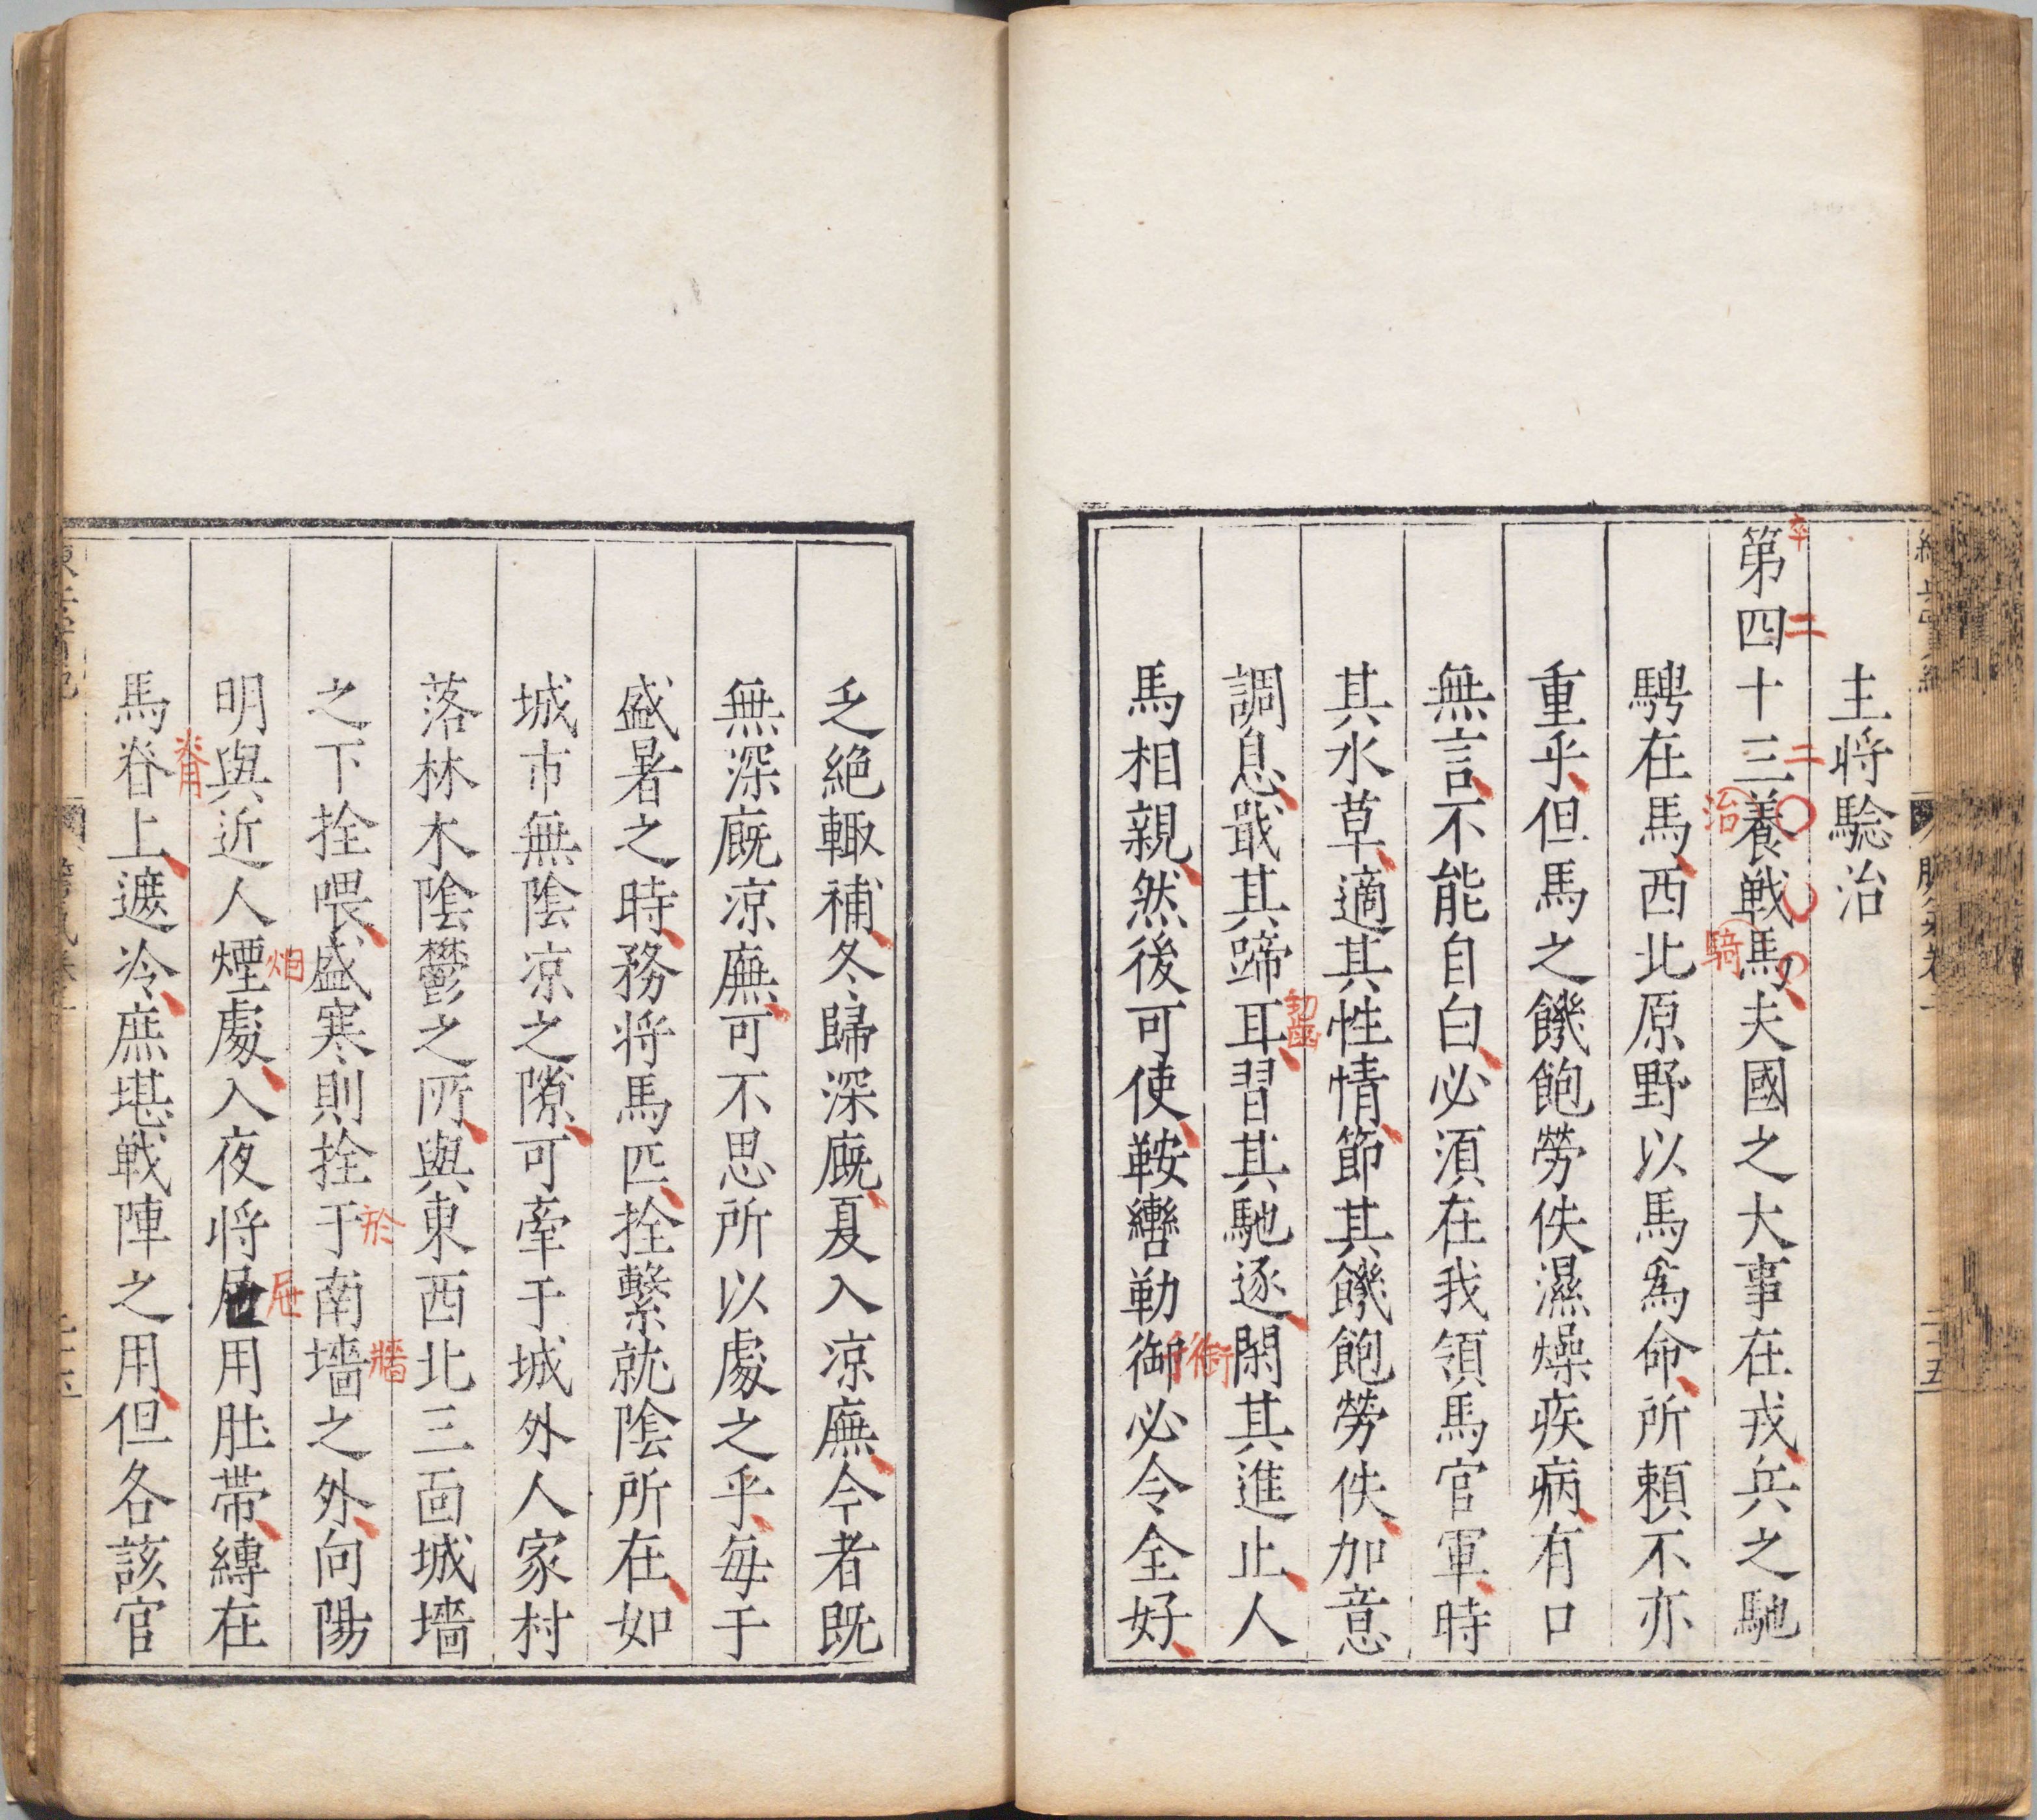 主将騐治
第四十三養戦馬夫國之大事在戎兵之馳
騁在馬西北原野以馬爲命所頼不亦
重乎但馬之饑飽勞佚濕燥疾病有口
無言不能自白必須在我領馬官軍時
其水草適其性情節其饑飽勞佚加意
調息戢其蹄耳習其馳逐閑其進止人
馬相親然後可使鞍轡勒御必令全好
卒
二
二
治
騎
剪齒
銜
乏絶輙補冬歸深廐夏入凉廡今者既
無深廐凉廡可不思所以處之乎毎于
盛暑之時務将馬匹拴繫就陰所在如
城市無陰凉之隙可牽于城外人家村
落林木陰鬱之所與東西北三面城墻
之下拴喂盛寒則拴于南墻之外向陽
明與近人煙處入夜将屉用肚帶縛在
馬脊上遮冷庶堪戦陣之用但各該官
於
牆
烟
屜
脊